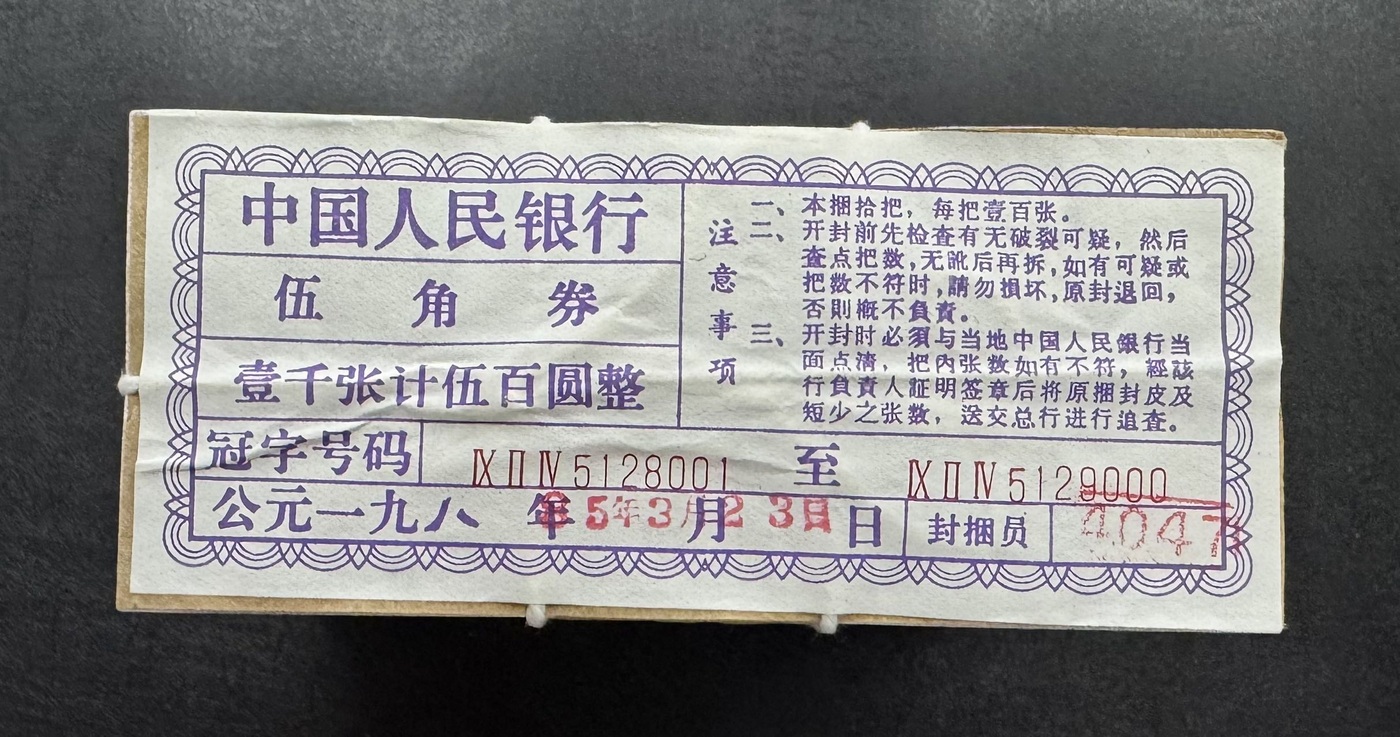 中国人民银行
伍角券
壹千张计伍百圆整
注意事项
一、本捆拾把，每把壹百张。
二、开封前先检查有无破裂可疑，然后
查点把数，无訛后再拆，如有可疑或
把数不符时，請勿損坏，原封退回，
否則概不負責。
三、开封时必須与当地中国人民銀行当
面点清，把內张数如有不符，經該
行負責人証明签章后将原捆封皮及
短少之张数，送交总行进行追查。
冠字号码 ⅨⅡⅣ5128001 至 ⅨⅡⅣ5129000
公元一九八 年 月 日 封捆员
5年3月23日
4047